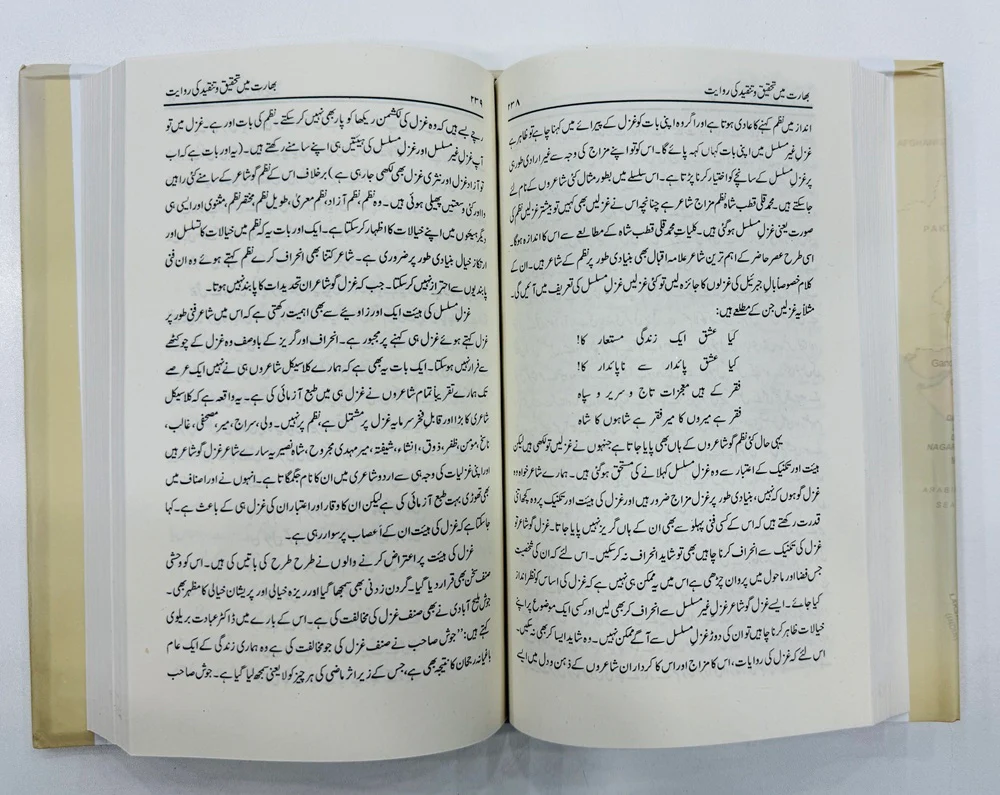 بھارت میں تحقیق و تنقید کی روایت
۲۳۸
انداز میں نظم کہنے کا عادی ہوتا ہے اور اگر وہ اپنی بات کو غزل کے پیرائے میں کہنا چاہے تو ظاہر ہے
غزل غیر مسلسل میں اپنی بات کہاں کہہ پائے گا۔ اس کو تو اپنے مزاج کی وجہ سے غیر ارادی طور ہی
پر غزل مسلسل کے سانچے کو اختیار کرنا پڑتا ہے۔ اس سلسلے میں بطور مثال کئی شاعروں کے نام لئے
جا سکتے ہیں۔ محمد قلی قطب شاہ نظم مزاج شاعر ہے چنانچہ اس نے غزلیں بھی کہیں تو بیشتر غزلیں نظم کی
صورت یعنی غزل مسلسل ہو گئی ہیں۔ کلیات محمد قلی قطب شاہ کے مطالعے سے اس کا اندازہ ہوگا۔
اسی طرح عصر حاضر کے اہم ترین شاعر علامہ اقبال بھی بنیادی طور پر نظم کے شاعر ہیں۔ ان کے
کلام خصوصاً بالِ جبرئیل کی غزلوں کا جائزہ لیں تو کئی غزلیں غزل مسلسل کی تعریف میں آئیں گی۔
مثلاً یہ غزلیں جن کے مطلعے ہیں:
کیا عشق ایک زندگی مستعار کا!
کیا عشق پائدار سے ناپائدار کا!
فقر کے ہیں معجزات تاج و سریر و سپاہ
فقر ہے میروں کا میر فقر ہے شاہوں کا شاہ
یہی حال کئی نظم گو شاعروں کے ہاں بھی پایا جاتا ہے جنہوں نے غزلیں تو لکھی ہیں لیکن
ہیئت اور تکنیک کے اعتبار سے وہ غزل مسلسل کہلانے کی مستحق ہو گئی ہیں۔ ہمارے شاعر خواہ وہ
غزل گو ہوں کہ نہیں، بنیادی طور پر غزل مزاج ضرور ہیں اور غزل کی ہیئت اور تکنیک پر وہ کچھ اتنی
قدرت رکھتے ہیں کہ اس کے کسی فنی پہلو سے بھی ان کے ہاں گریز نہیں پایا جاتا۔ غزل گو شاعر تو
غزل کی تکنیک سے انحراف کرنا چاہیں بھی تو شاید انحراف نہ کر سکیں۔ اس لئے کہ ان کی شخصیت
جس فضا اور ماحول میں پروان چڑھی ہے اس میں یہ ممکن ہی نہیں ہے کہ غزل کی اساس کو نظر انداز
کیا جائے۔ ایسے غزل گو شاعر غزل غیر مسلسل سے انحراف کر بھی لیں اور کسی ایک موضوع پر اپنے
خیالات ظاہر کرنا چاہیں تو ان کی دوڑ غزل مسلسل سے آگے ممکن نہیں۔ وہ شاید ایسا کر بھی نہ سکیں۔
اس لئے کہ غزل کی روایات، اس کا مزاج اور اس کا کردار ان شاعروں کے ذہن و دل میں ایسے
بھارت میں تحقیق و تنقید کی روایت
۲۳۹
رچے بسے ہیں کہ وہ غزل کی لکشمن ریکھا کو پار بھی نہیں کر سکتے۔ نظم کی بات اور ہے۔ غزل میں تو
آپ غزل غیر مسلسل اور غزل مسلسل کی ہیئتیں ہی اپنے سامنے رکھتے ہیں۔ (یہ اور بات ہے کہ اب
تو آزاد غزل اور نثری غزل بھی لکھی جا رہی ہے) برخلاف اس کے نظم گو شاعر کے سامنے کئی راہیں
وا اور کئی وسعتیں پھیلی ہوئی ہیں۔ وہ نظم، نظم آزاد، نظم معریٰ، طویل نظم، مختصر نظم، مثنوی اور ایسی ہی
دیگر ہیئتوں میں اپنے خیالات کا اظہار کر سکتا ہے۔ ایک اور بات یہ کہ نظم میں خیالات کا تسلسل اور
ارتکاز خیال بنیادی طور پر ضروری ہے۔ شاعر کتنا بھی انحراف کرے نظم کہتے ہوئے وہ ان فنی
پابندیوں سے احتراز نہیں کر سکتا۔ جب کہ غزل گو شاعر ان تحدیدات کا پابند نہیں ہوتا۔
غزل مسلسل کی ہیئت ایک اور زاویئے سے بھی اہمیت رکھتی ہے کہ اس میں شاعر فنی طور پر
غزل کہتے ہوئے غزل ہی کہنے پر مجبور ہے۔ انحراف اور گریز کے باوصف وہ غزل کے چوکھٹے
سے فرار نہیں ہو سکتا۔ ایک بات یہ بھی ہے کہ ہمارے کلاسیکل شاعروں ہی نے نہیں ایک عرصے
تک ہمارے تقریباً تمام شاعروں نے غزل ہی میں طبع آزمائی کی ہے۔ یہ واقعہ ہے کہ کلاسیکل
شاعری کا بڑا اور قابلِ فخر سرمایہ غزل پر مشتمل ہے، نظم پر نہیں۔ ولی، سراج، میر، مصحفی، غالب،
ناسخ، مومن، ظفر، ذوق، انشاء، شیفتہ، میر مہدی مجروح، شاہ نصیر یہ سارے شاعر غزل گو شاعر ہیں
اور اپنی غزلیات کی وجہ ہی سے اردو شاعری میں ان کا نام جگمگاتا ہے۔ انہوں نے اور اصناف میں
بھی تھوڑی بہت طبع آزمائی کی ہے لیکن ان کا وقار اور اعتبار ان کی غزل ہی کے باعث ہے۔ کہا
جا سکتا ہے کہ غزل کی ہیئت ان کے اعصاب پر سوار رہی ہے۔
غزل کی ہیئت پر اعتراض کرنے والوں نے طرح طرح کی باتیں کی ہیں۔ اس کو وحشی
صنف سخن بھی قرار دیا گیا۔ گردن زدنی بھی سمجھا گیا اور ریزہ خیالی اور پریشان خیالی کا مظہر بھی۔
جوش ملیح آبادی نے بھی صنف غزل کی مخالفت کی ہے۔ اس کے بارے میں ڈاکٹر عبادت بریلوی
کہتے ہیں: "جوش صاحب نے صنف غزل کی جو مخالفت کی ہے وہ ہماری زندگی کے ایک عام
باغیانہ رجحان کا نتیجہ بھی ہے، جس کے زیر اثر ماضی کی ہر چیز کو لایعنی سمجھ لیا گیا ہے۔ جوش صاحب